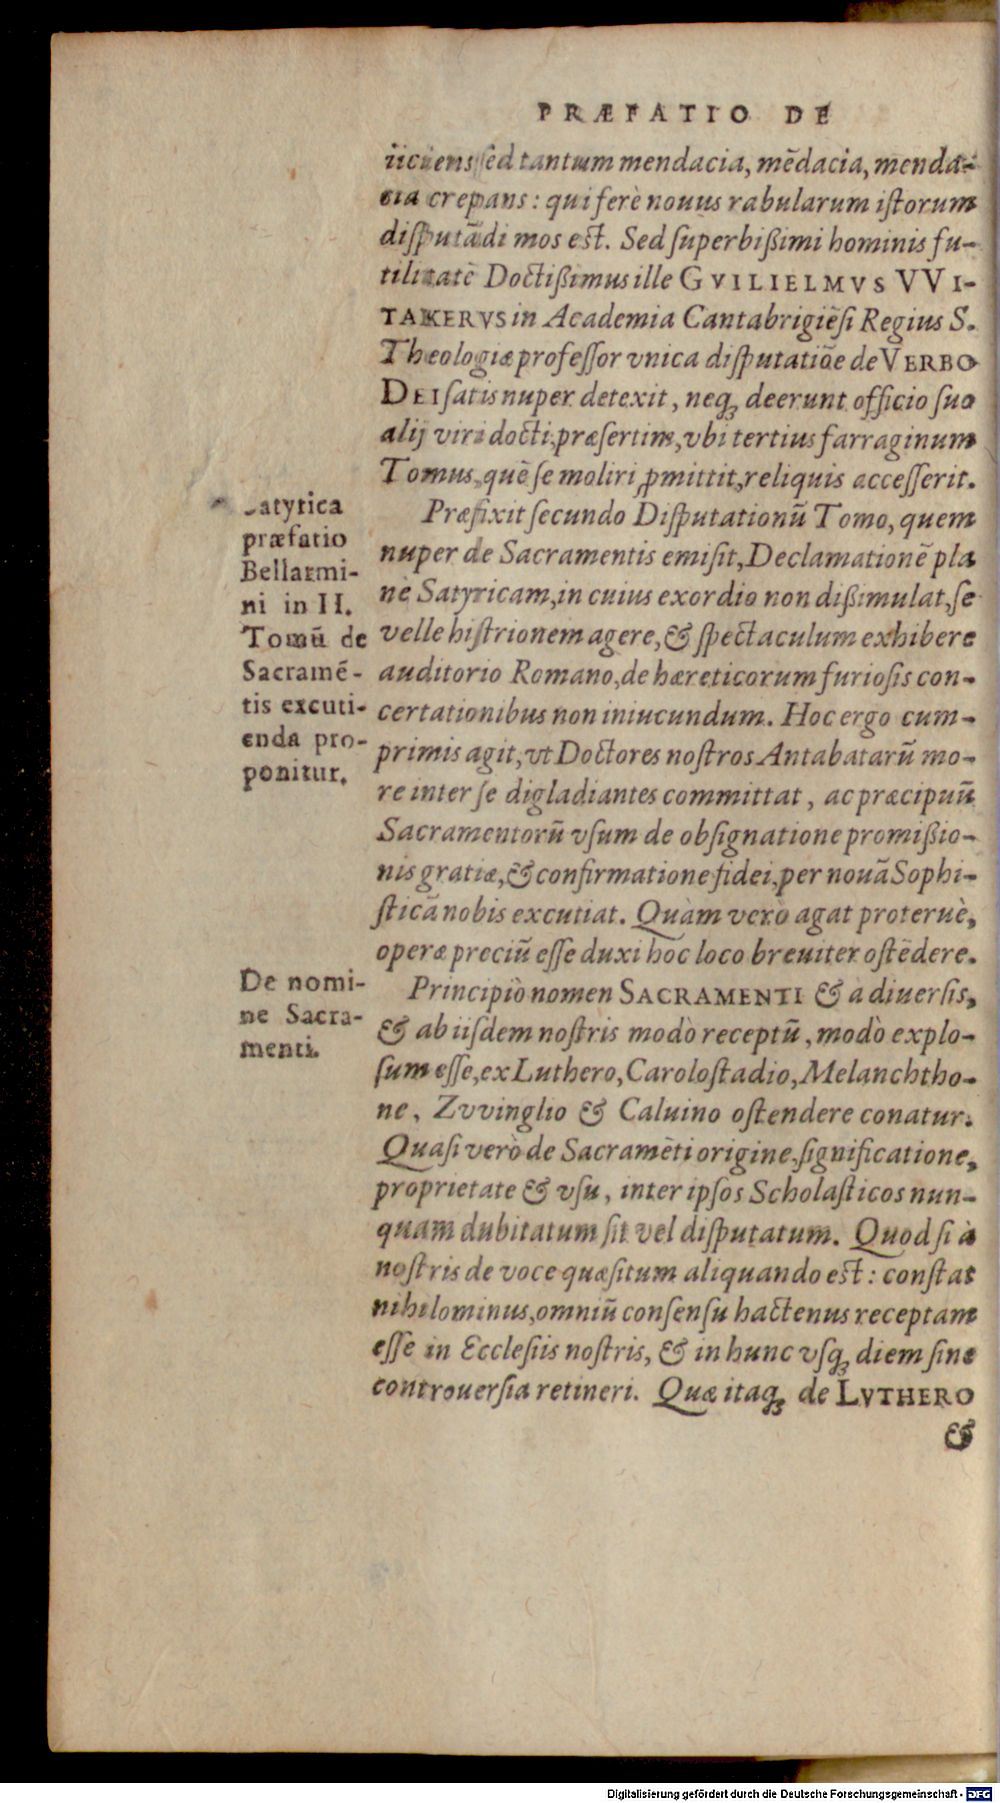 PRÆFATIO DE
iiciens sed tantum mendacia, mẽdacia, menda-
cia crepans: qui ferè nouus rabularum istorum
disputãdi mos est. Sed superbißimi hominis fu-
tilitatẽ Doctißimus ille GVILIELMVS VVI-
TAKERVS in Academia Cantabrigiẽsi Regius S.
Theologiæ professor vnica disputatiõe de VERBO
DEI satis nuper detexit, neq; deerunt officio suo
alij viri docti, præsertim, vbi tertius farraginum
Tomus, quẽ se moliri ꝓmittit, reliquis accesserit.
Præfixit secundo Disputationũ Tomo, quem
nuper de Sacramentis emisit, Declamationẽ pla
nè Satyricam, in cuius exordio non dißimulat, se
velle histrionem agere, & spectaculum exhibere
auditorio Romano, de hæreticorum furiosis con-
certationibus non iniucundum. Hoc ergo cum-
primis agit, vt Doctores nostros Antabatarũ mo-
re inter se digladiantes committat, ac præcipuũ
Sacramentorũ vsum de obsignatione promißio-
nis gratiæ, & confirmatione fidei, per nouã Sophi-
sticã nobis excutiat. Quàm verò agat proteruè,
operæ preciũ esse duxi hoc loco breuiter ostẽdere.
Principiò nomen SACRAMENTI & à diuersis,
& ab iisdem nostris modò receptũ, modò explo-
sum esse, ex Luthero, Carolostadio, Melanchtho-
ne, Zvvinglio & Caluino ostendere conatur.
Quasi verò de Sacramẽti origine, significatione,
proprietate & vsu, inter ipsos Scholasticos nun-
quam dubitatum sit vel disputatum. Quod si à
nostris de voce quæsitum aliquando est: constat
nihilominus, omniũ consensu hactenus receptam
esse in Ecclesiis nostris, & in hunc vsq; diem sine
controuersia retineri. Quæ itaq; de LVTHERO
&
Satyrica
præfatio
Bellarmi-
ni in II.
Tomũ de
Sacramẽ-
tis excuti-
enda pro-
ponitur.
De nomi-
ne Sacra-
menti.
Digitalisierung gefördert durch die Deutsche Forschungsgemeinschaft - DFG